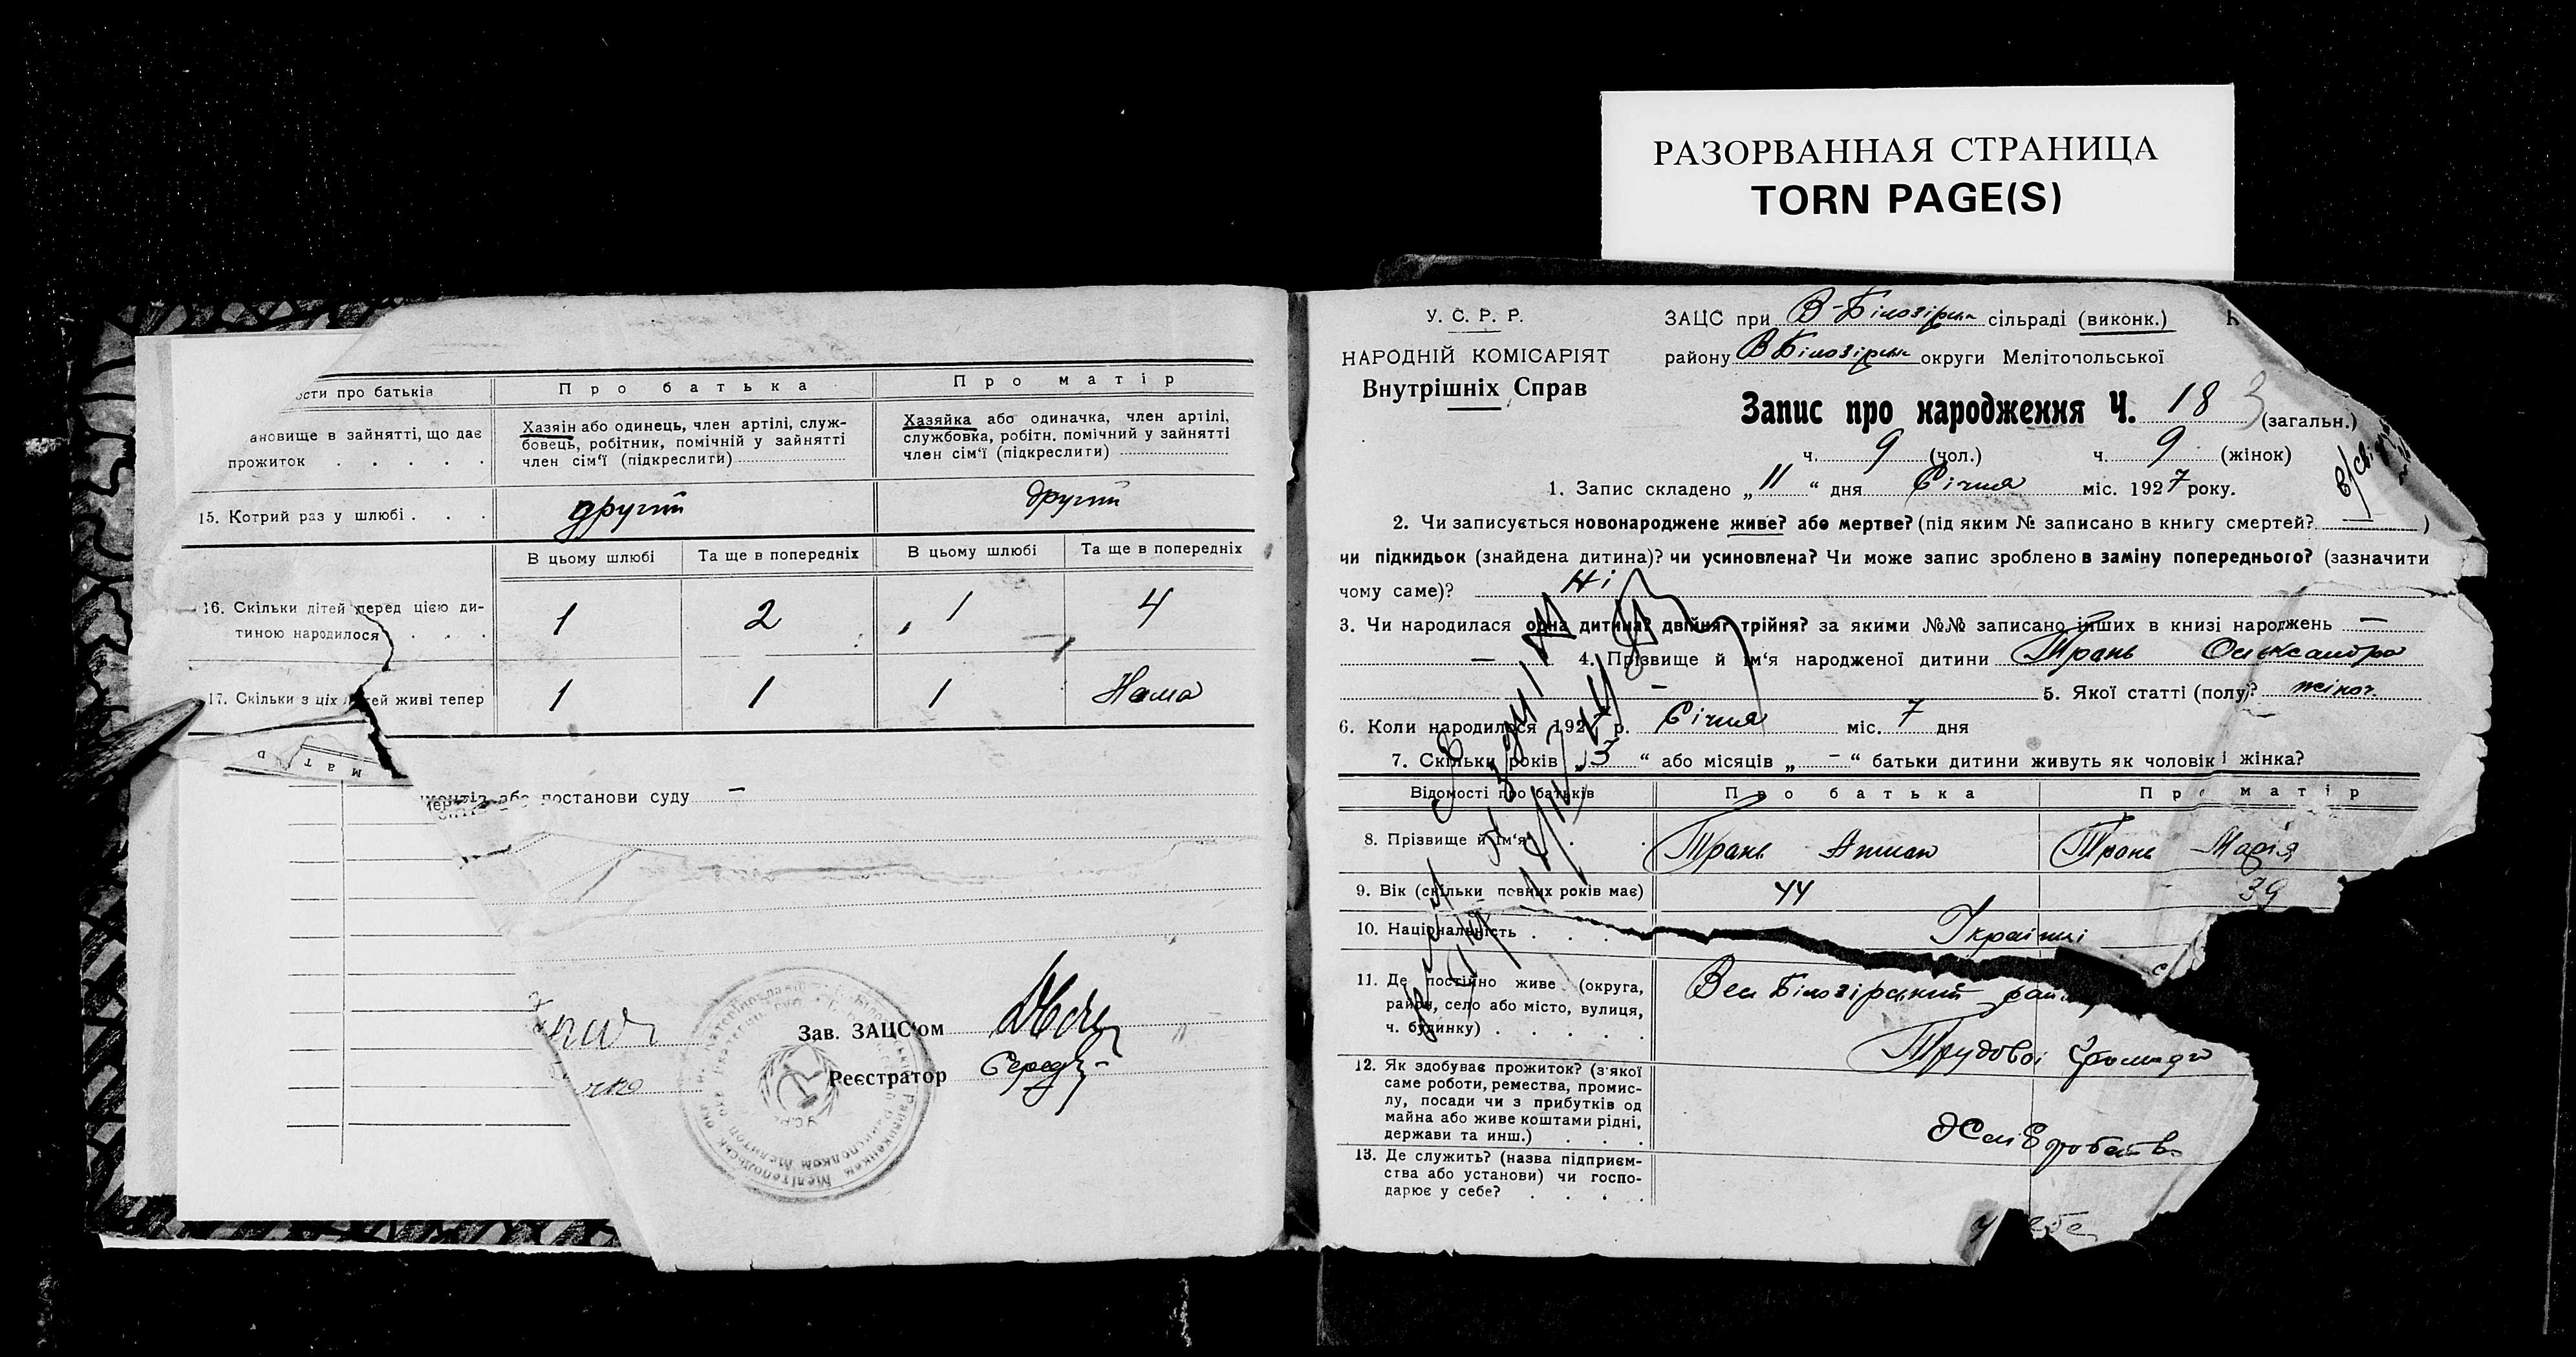 РАЗОРВАННАЯ СТРАНИЦА
TORN PAGE(S)
ости про батьків
Про батька
Про матір
ановище в зайнятті, що дає
прожиток . . . . .
Хазяін або одинець, член артілі, служ-
бовець, робітник, помічній у зайнятті
член сім'ї (підкреслити)
Хазяйка або одиначка, член артілі,
службовка, робітн. помічний у зайнятті
член сім'ї (підкреслити)
15. Котрий раз у шлюбі . . .
другий
другий
В цьому шлюбі
Та ще в попередніх
В цьому шлюбі
Та ще в попередніх
16. Скільки дітей перед цією ди-
тиною народилося . . .
1
2
1
4
17. Скільки з ціх дітей живі тепер
1
1
1
Нема
мат
або постанови суду —
Зав. ЗАЦС'ом
Реєстратор
У. С. Р. Р.
НАРОДНІЙ КОМІСАРІЯТ
Внутрішніх Справ
ЗАЦС при В-Білозірськ сільраді (виконк.)
району ВБілозірськ округи Мелітопольської
Запис про народження Ч. 18 (загальн.)
ч. 9 (чол.) ч. 9 (жінок)
1. Запис складено „11“ дня Січня міс. 1927 року.
2. Чи записується новонароджене живе? або мертве? (під яким № записано в книгу смертей? — )
чи підкидьок (знайдена дитина)? чи усиновлена? Чи може запис зроблено в заміну попереднього? (зазначити
чому саме)? Ні
3. Чи народилася одна дитина? двійня? трійня? за якими №№ записано інших в книзі нарожень —
— 4. Прізвище й ім'я народженої дитини Трань Олександра
— 5. Якої статті (полу)? жіноч.
6. Коли народилося 1927 р. Січня міс. 7 дня
7. Скільки років „3“ або місяців „—“ батьки дитини живуть як чоловік і жінка?
Відомості про батьків
Про батька
Про матір
8. Прізвище й ім'я . .
Трань
Трань Марія
9. Вік (скільки повних років має)
44
39
10. Національність . . .
Українці
11. Де постійно живе (округа,
район, село або місто, вулиця,
ч. будинку) . . . . .
Вел Білозірський рай
Трудової Громади
12. Як здобуває прожиток? (з якої
саме роботи, ремества, промис-
лу, посади чи з прибутків од
майна або живе коштами рідні,
держави та инш.) . . .
Хліборобств
13. Де служить? (назва підприєм-
ства або установи) чи госпо-
дарює у себе? . . . .
У себе